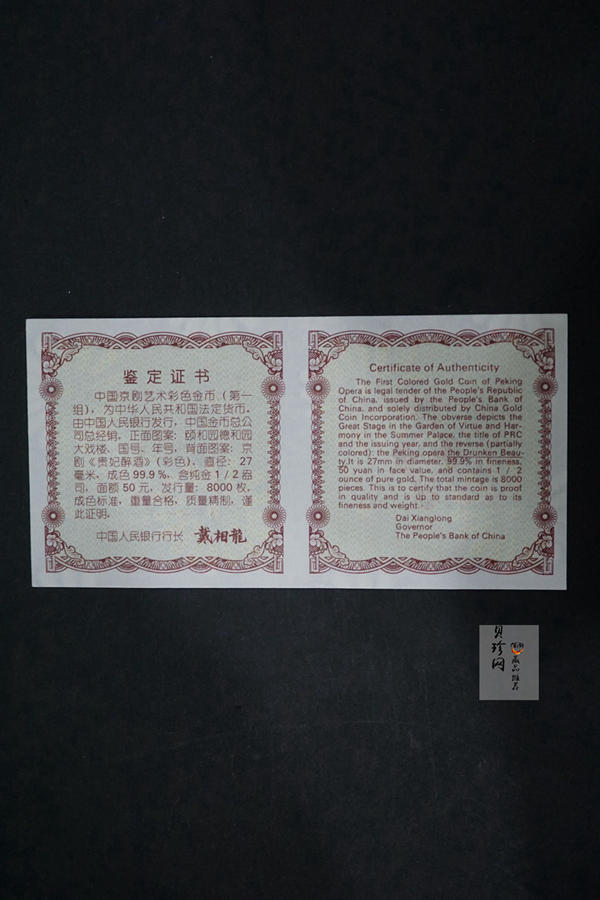 鉴定证书
中国京剧艺术彩色金币（第一
组），为中华人民共和国法定货币。
由中国人民银行发行，中国金币总公
司总经销。正面图案：颐和园德和园
大戏楼、国号、年号，背面图案：京
剧《贵妃醉酒》（彩色）。直径：27
毫米，成色99.9%，含纯金1/2盎
司，面额50元，发行量：8000枚。
成色标准，重量合格，质量精制，谨
此证明。
中国人民银行行长 戴相龍
Certificate of Authenticity
The First Colored Gold Coin of Peking
Opera is legal tender of the People's Republic
of China, issued by the People's Bank of
China, and solely distributed by China Gold
Coin Incorporation. The obverse depicts the
Great Stage in the Garden of Virtue and Har-
mony in the Summer Palace, the title of PRC
and the issuing year, and the reverse (partially
colored): the Peking opera the Drunken Beau-
ty.It is 27mm in diameter, 99.9% in fineness,
50 yuan in face value, and contains 1/2
ounce of pure gold. The total mintage is 8000
pieces. This is to certify that the coin is proof
in quality and is up to standard as to its
fineness and weight.
Dai Xianglong
Governor
The People's Bank of China
贝珍网
藏品推荐